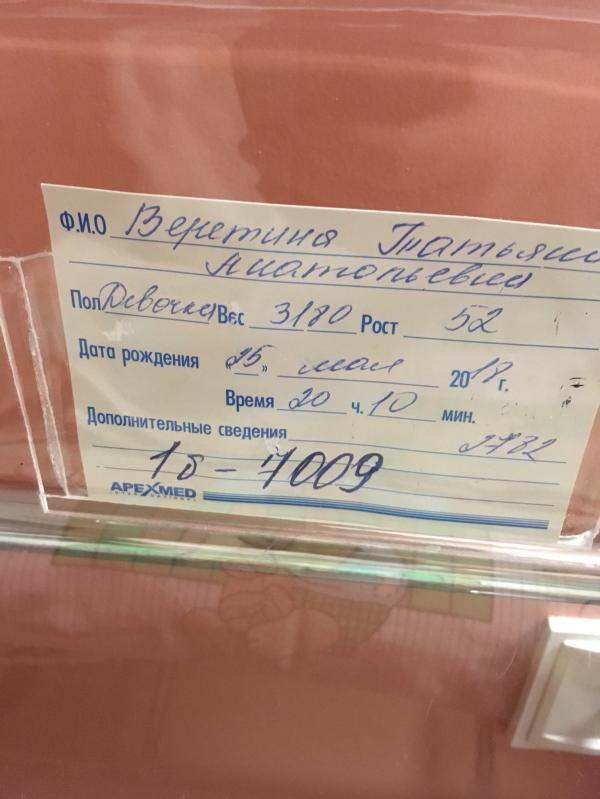 Ф.И.О Веретина Татьяна
Анатольевна
Пол Девочка Вес 3180 Рост 52
Дата рождения «25» мая 2018 г.
Время 20 ч. 10 мин.
Дополнительные сведения 2782
1б - 7009
APEXMED